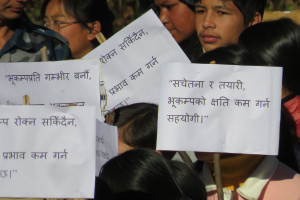 रोक्न सकिँदैन,
प्रभाव कम गर्न
"भूकम्पप्रति गम्भीर बनौं,
"सचेतना र तयारी,
भूकम्पको क्षति कम गर्न
सहयोगी।"
रोक्न सकिँदैन,
प्रभाव कम गर्न